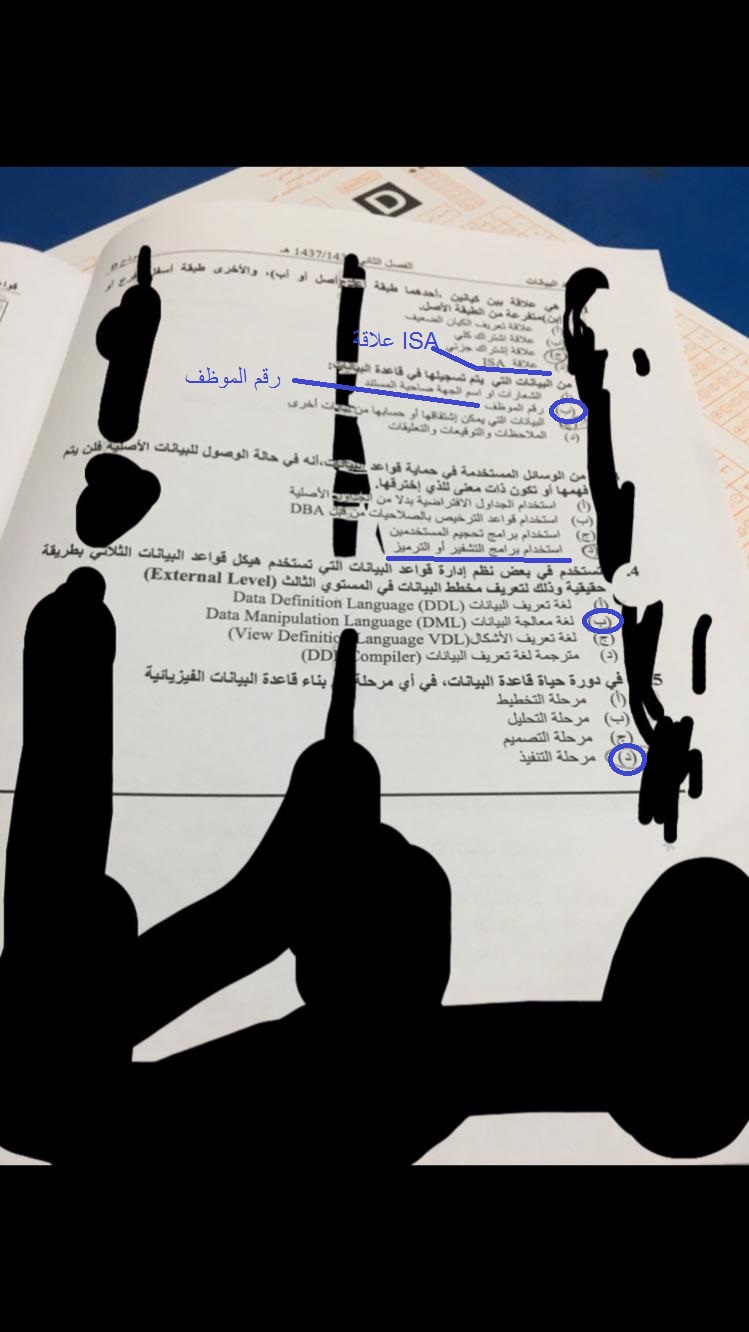 D
الفصل الثاني 1437/143 هـ
البيانات
هي علاقة بين كيانين .أحدهما طبقة (أصل أو أب)، والأخرى طبقة أسفل فرع أو
إبن)متفرعة من الطبقة الأصل.
(أ) علاقة تعريف الكيان الضعيف
(ب) علاقة اشتراك كلي
(ج) علاقة إشتراك جزئي
علاقة ISA
(د) علاقة ISA
من البيانات التي يتم تسجيلها في قاعدة البيانات:
رقم الموظف
الشعارات او اسم الجهة صاحبة المستند
(ب) رقم الموظف
البيانات التي يمكن إشتقاقها أو حسابها من بيانات أخرى
(د) الملاحظات والتوقيعات والتعليقات
من الوسائل المستخدمة في حماية قواعد البيانات،أنه في حالة الوصول للبيانات الأصلية فلن يتم
فهمها أو تكون ذات معنى للذي إخترقها.
(أ) استخدام الجداول الافتراضية بدلا من الجداول الأصلية
(ب) استخدام قواعد الترخيص بالصلاحيات من قبل DBA
(ج) استخدام برامج تحجيم المستخدمين
(د) استخدام برامج التشفير أو الترميز
4. تستخدم في بعض نظم إدارة قواعد البيانات التي تستخدم هيكل قواعد البيانات الثلاثي بطريقة
حقيقية وذلك لتعريف مخطط البيانات في المستوي الثالث (External Level)
(أ) لغة تعريف البيانات Data Definition Language (DDL)
(ب) لغة معالجة البيانات Data Manipulation Language (DML)
(ج) لغة تعريف الأشكال(View Definition Language VDL)
(د) مترجمة لغة تعريف البيانات (DDL Compiler)
5. في دورة حياة قاعدة البيانات، في أي مرحلة بناء قاعدة البيانات الفيزيائية
(أ) مرحلة التخطيط
(ب) مرحلة التحليل
(ج) مرحلة التصميم
(د) مرحلة التنفيذ